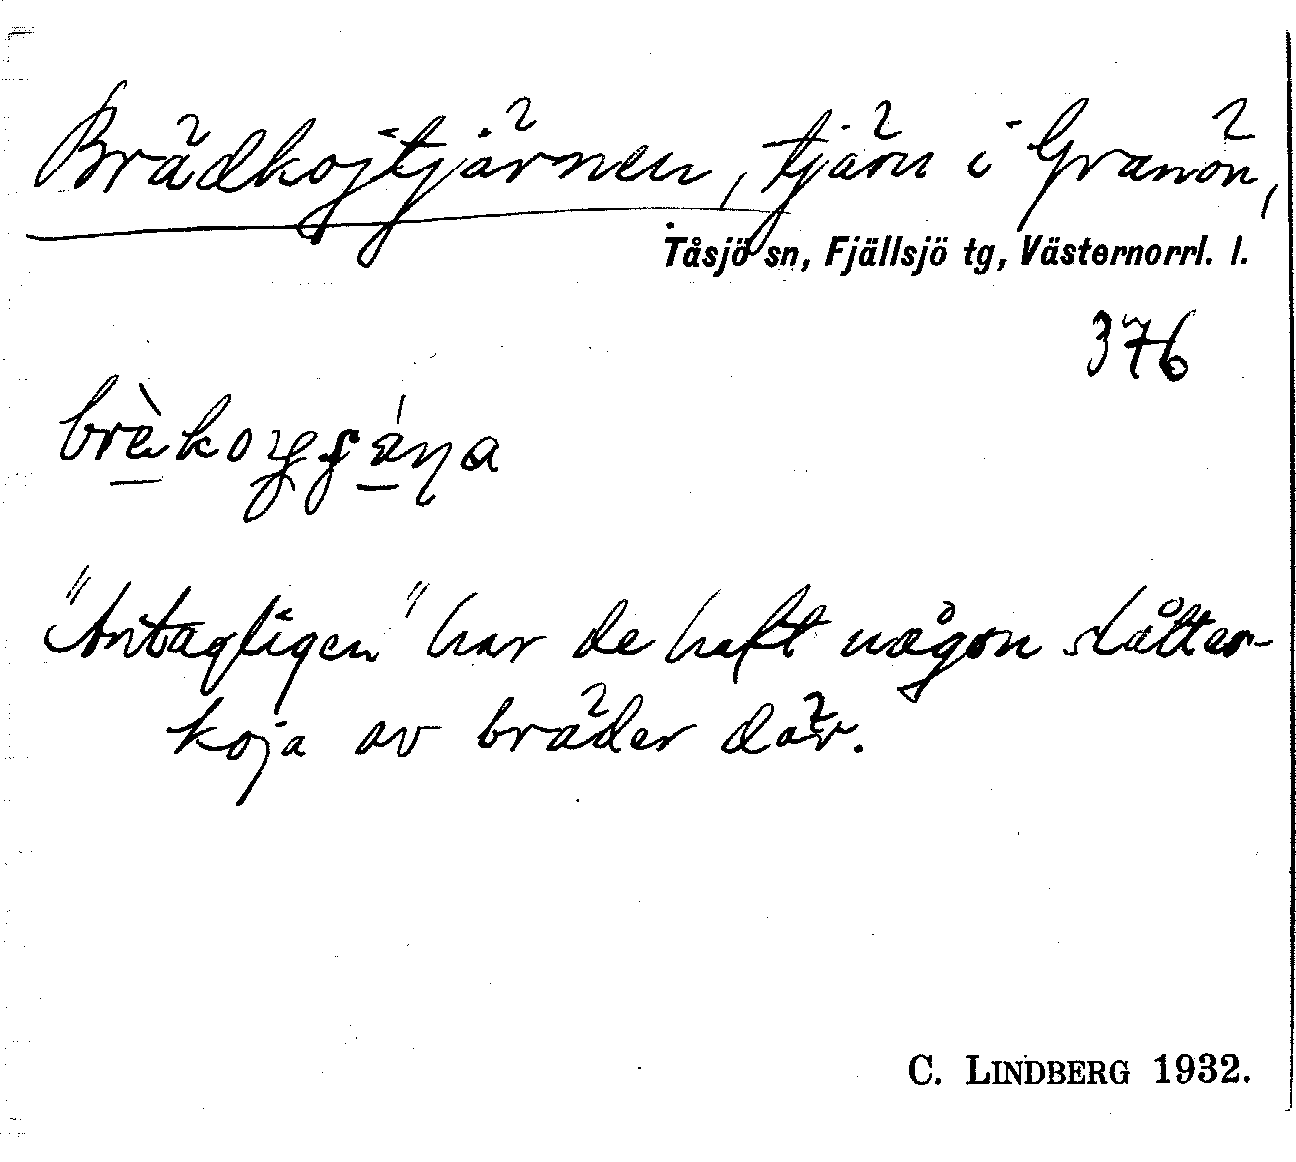 Brädkojtjärnen, tjärn i Granön,
Tåsjö sn, Fjällsjö tg, Västernorrl. l.
376
"Antagligen" har de haft någon slåtter-
koja av bräder där.
C. LINDBERG 1932.